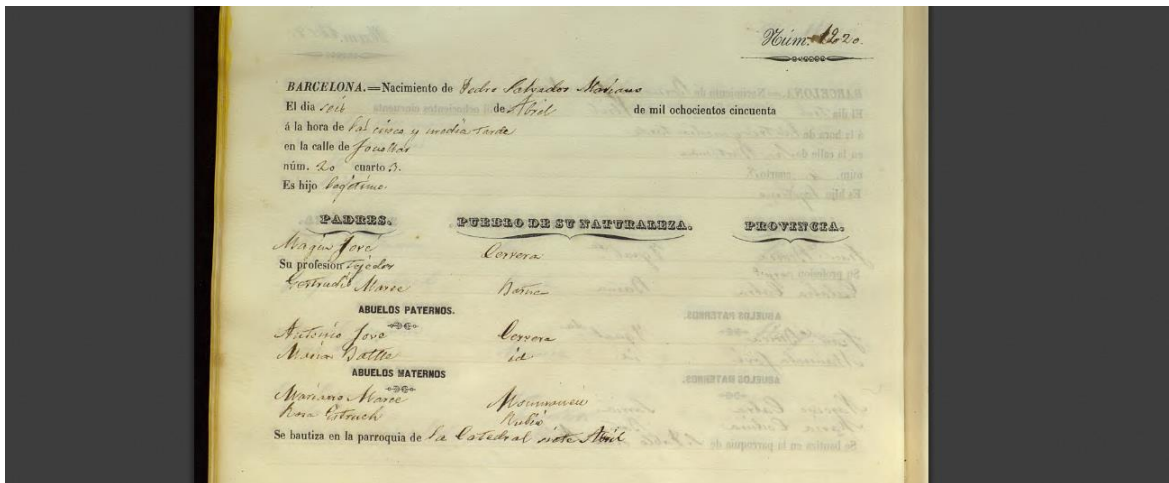 Núm. 1220.
BARCELONA.=Nacimiento de Pedro Salvador Mariano
El dia seis de Abril de mil ochocientos cincuenta
á la hora de las cinco y media tarde
en la calle de
núm. 20 cuarto 3.
Es hijo legítimo.
PADRES. PUEBLO DE SU NATURALEZA. PROVINCIA.
Magin Jové Cervera
Su profesion Tejedor
Gertrudis Marce Barna
ABUELOS PATERNOS.
Antonio Jové Cervera
Maria Batlle id
ABUELOS MATERNOS
Mariano Marce
Rosa Estruch Rubió
Se bautiza en la parroquia de La Catedral siete Abril